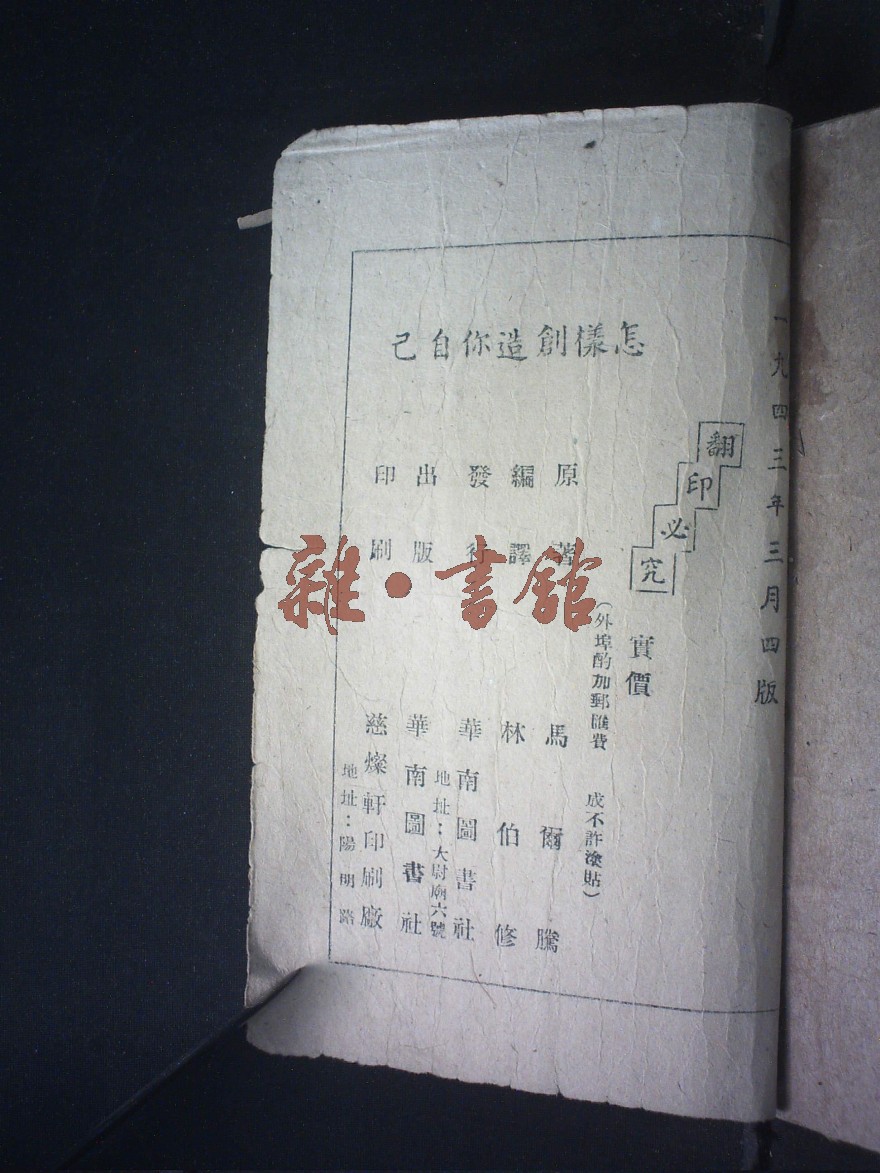 怎樣創造你自己
一九四三年三月四版
翻印必究
實價
(外埠酌加郵匯費 成不許塗貼)
原著 馬爾騰
編譯 林伯修
發行 華南圖書社
地址：大尉廟六號
出版 華南圖書社
印刷 慈燦軒印刷廠
地址：陽明路
雜·書館